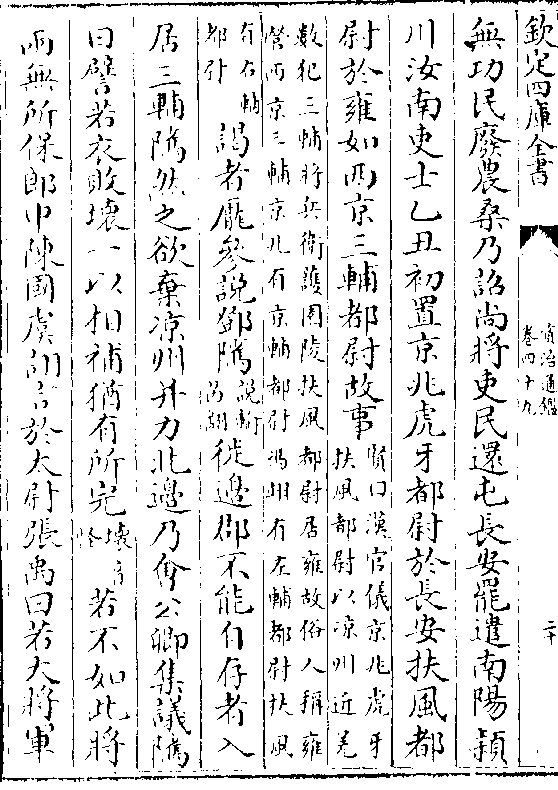 欽定四庫全書
資治通鑑
卷四十九
二十
無功民廢農桑乃詔尚將吏民還屯長安罷遣南陽潁
川汝南吏士乙丑初置京兆虎牙都尉於長安扶風都
尉於雍如西京三輔都尉故事
賢曰漢官儀京兆虎牙
扶風都尉以凉州近羌
數犯三輔將兵衛護園陵扶風都尉居雍故俗人稱雍
營西京三輔京兆有京輔都尉馮翊有左輔都尉扶風
有右輔
都尉
謁者龎參說鄧隲
說
徙邊郡不能自存者入
居三輔隲然之欲棄凉州并力北邊乃會公卿集議隲
曰譬若衣敗壞一以相補猶有所完
壞音
怪
若不如此將
兩無所保郎中陳國虞詡言於太尉張禹曰若大將軍